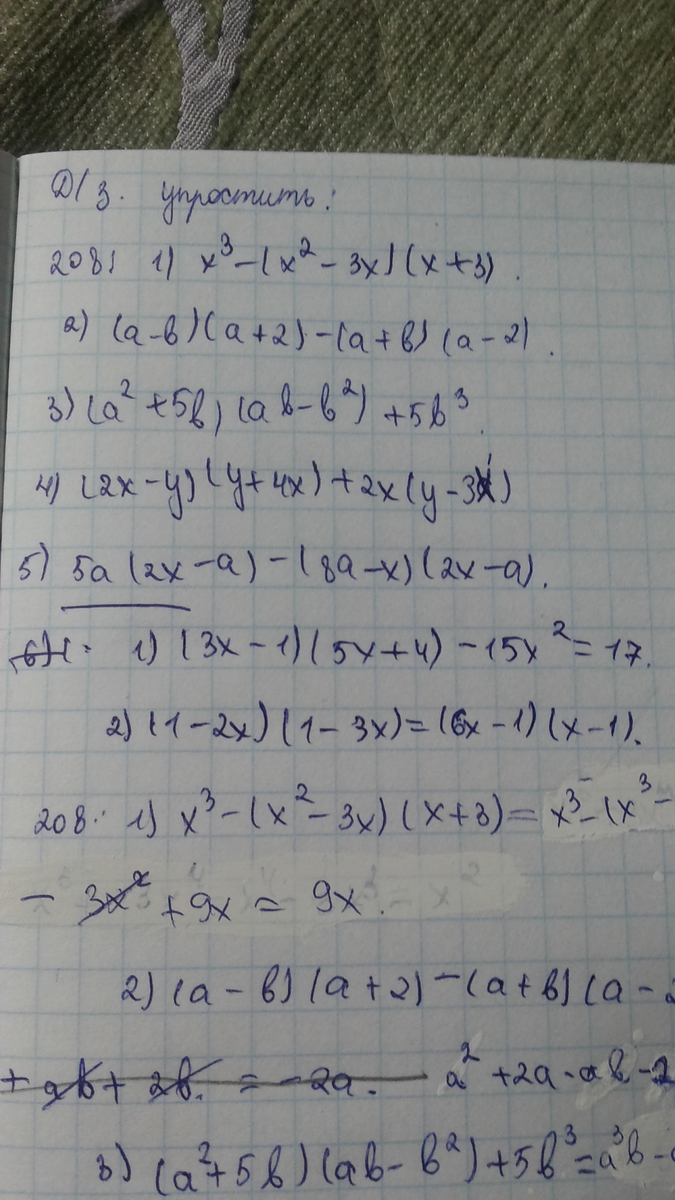 Д/з. упростить:
208. 1) x³-(x²-3x)(x+3).
2) (a-b)(a+2)-(a+b)(a-2).
3) (a²+5b)(ab-b²)+5b³.
4) (2x-y)(y+4x)+2x(y-3x)
5) 5a(2x-a)-(8a-x)(2x-a).
1) (3x-1)(5x+4)-15x²=17.
2) (1-2x)(1-3x)=(6x-1)(x-1).
208. 1) x³-(x²-3x)(x+3)=x³-(x³-
- 3x² +9x = 9x.
2) (a-b)(a+2)-(a+b)(a-2
+ ab + 2b. = -2a. a²+2a-ab-2
3) (a²+5b)(ab-b²)+5b³=a³b-